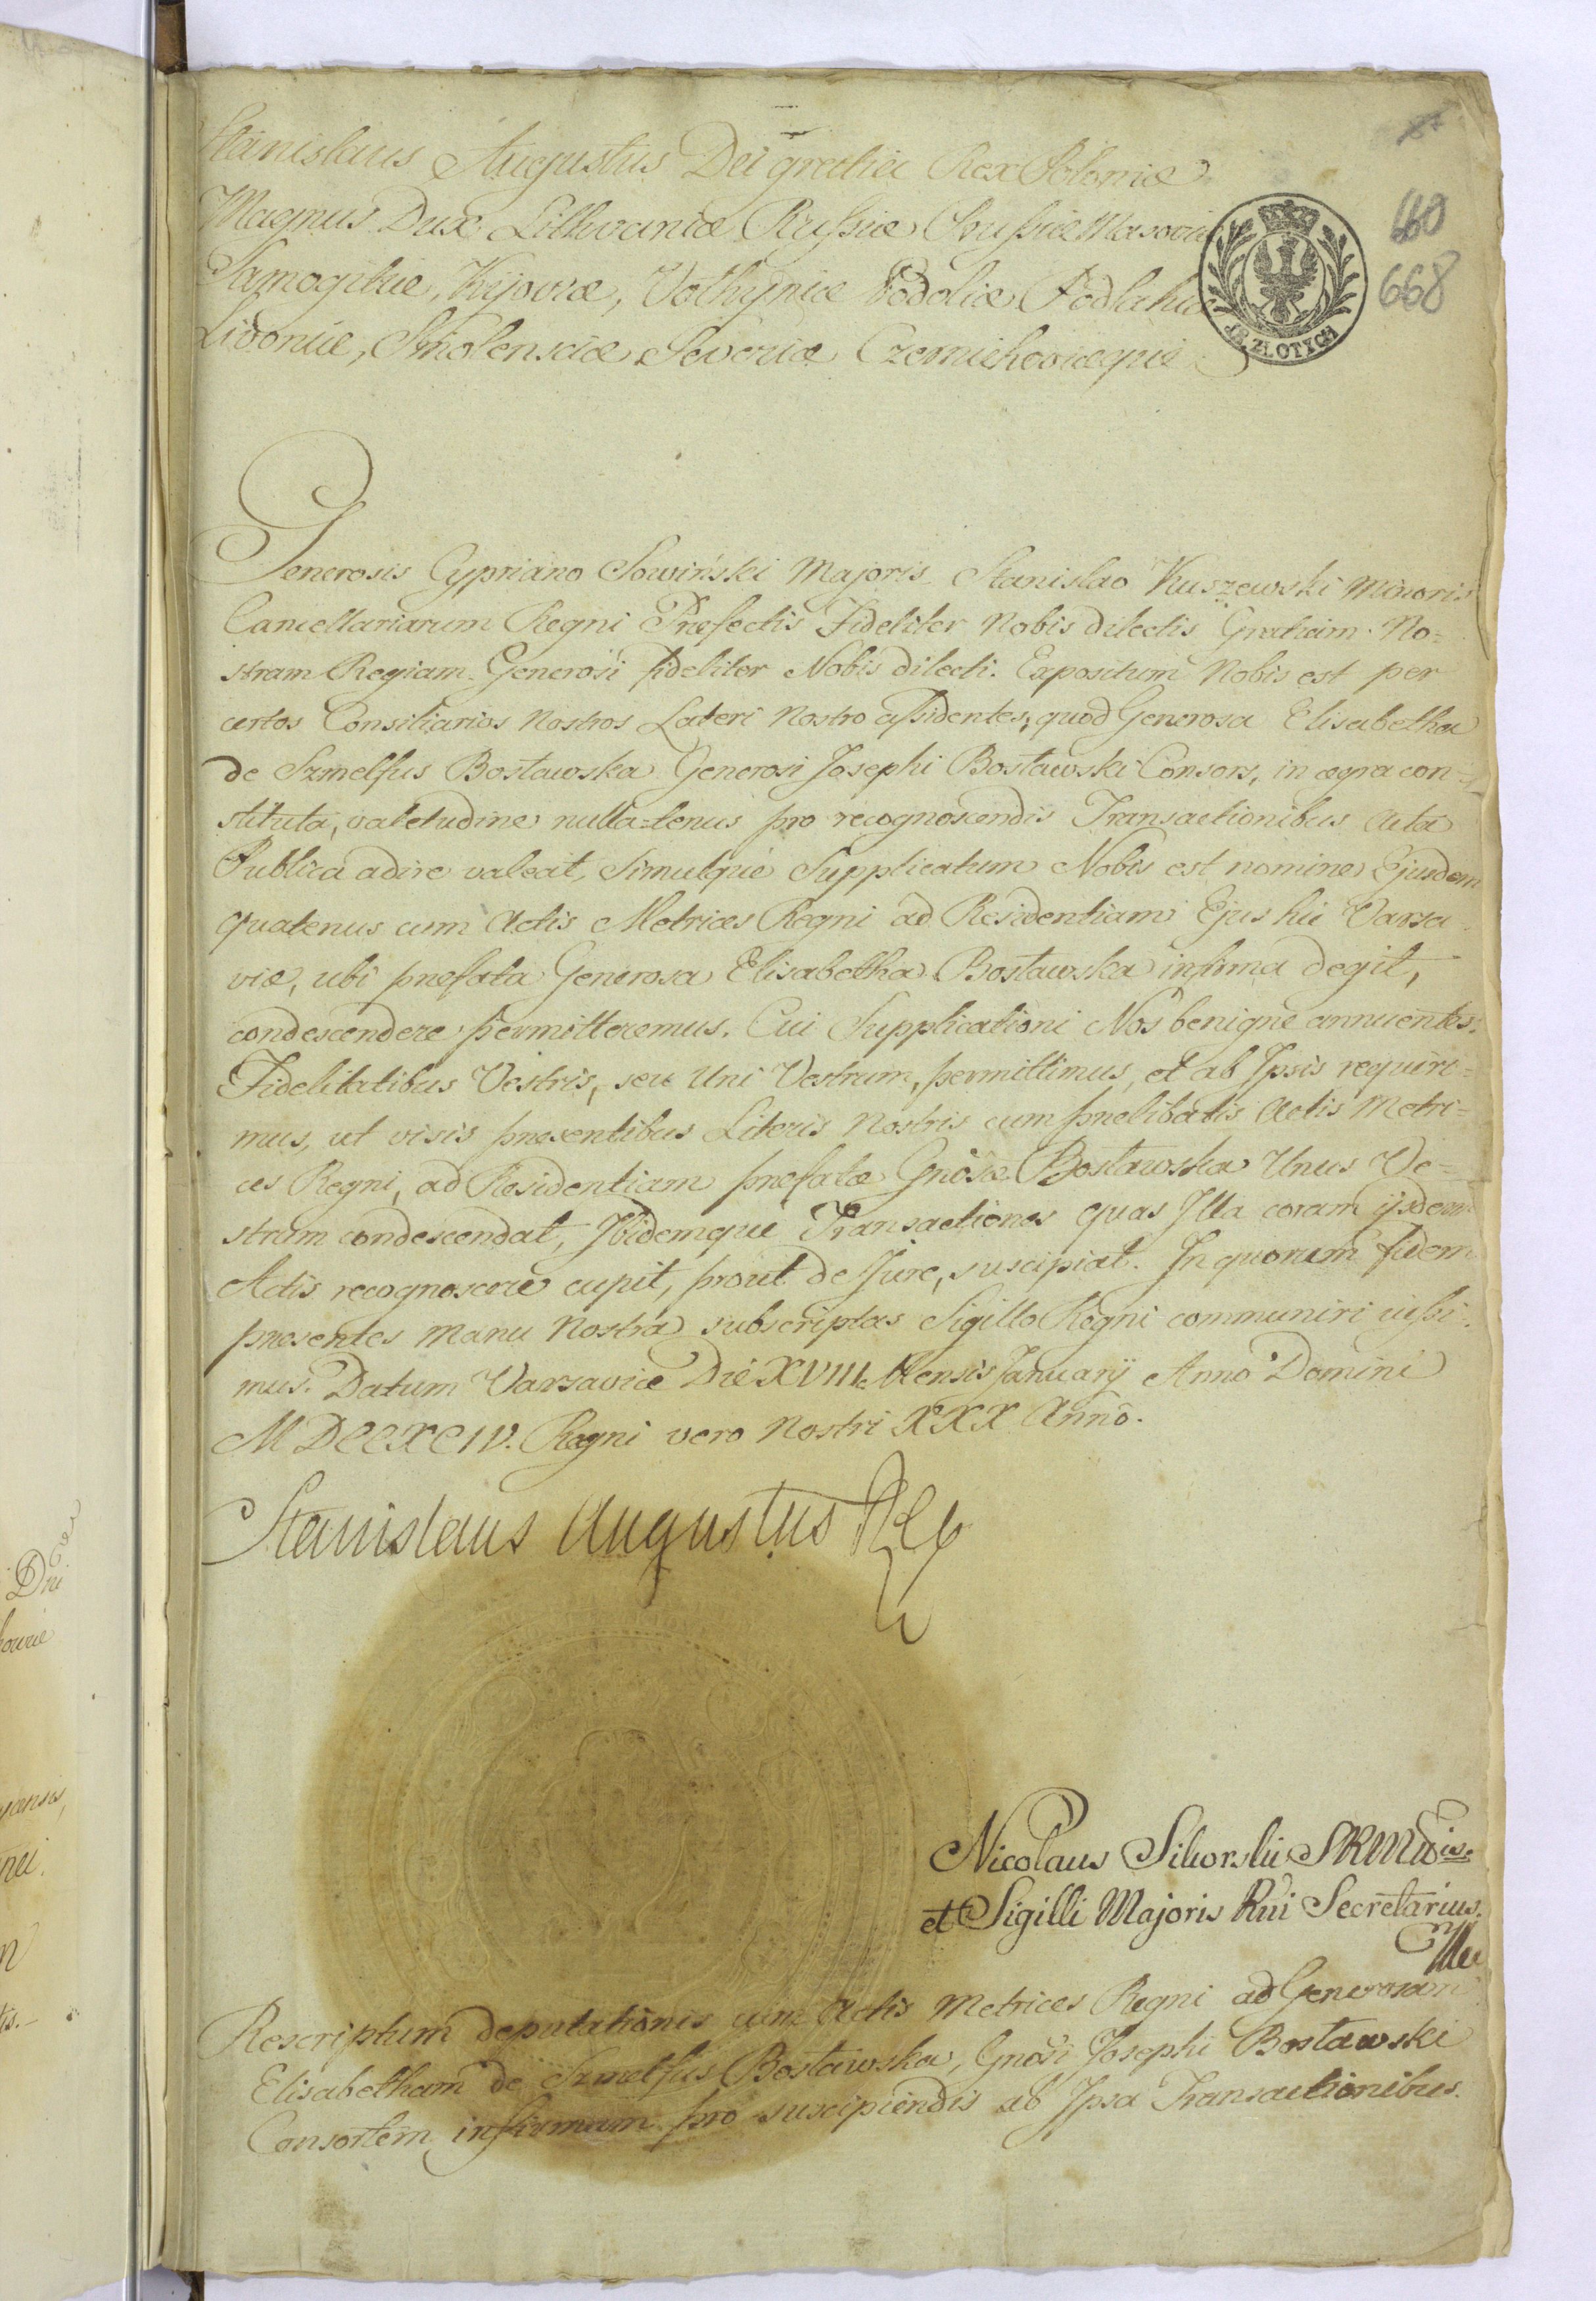 Stanislaus Augustus Dei gratia Rex Poloniæ
Magnus Dux Lithvaniæ Rußiæ Prußiæ Masoviæ
Samogitiæ, Kijoviæ, Volhyniæ Podoliæ Podlahiæ
Livoniæ, Smolensciæ Severiæ Czerniehoviæque
12 ZŁOTYCH
87
660
668
Generosis Cypriano Sowiński Majoris Stanislao Kuszewski Minoris
Cancellariarum Regni Præfectis Fideliter Nobis dilectis Gratiam No=
stram Regiam. Generosi fideliter Nobis dilecti. Expositum Nobis est per
certos Consiliarios Nostros Lateri Nostro aßidentes, quod Generosa Elisabetha
de Szmelfus Bosławska Generosi Josephi Bosławski Consors, in ægra con=
stituta, valetudine nulla=tenus pro recognoscendis Transactionibus Acta
Publica adire valeat, Simulque Supplicatum Nobis est nomine Ejusdem
quatenus cum Actis Metrices Regni ad Residentiam Ejus hic Varsa
viæ, ubi præfata Generosa Elisabetha Bosławska infirma degit,
condescendere permitteremus. Cui Supplicationi Nos benigne annuentes.
Fidelitatibus Vestris, seu Uni Vestrum, permittimus, et ab Ipsis requiri=
mus, ut visis præsentibus Literis Nostris cum prælibatis Actis Metri=
ces Regni, ad Residentiam præfatæ Gnosæ Bosławska Unus Ve=
strum condescendat, Ibidemque Transactiones quas Illa coram ijsdem
Actis recognoscere cupit, prout de Jure, suscipiat. In quorum fidem
præsentes manu Nostra subscriptas Sigillo Regni communiri jußi.
mus. Datum Varsaviæ Die XVIII Mensis Januarij Anno Domini
MDCCXCIV. Regni vero Nostri XXX Anno.
Stanislaus Augustus Rex
Nicolaus Sikorski SRMtis
et Sigilli Majoris Rni Secretarius.
Rescriptum deputationis cum Actis Metrices Regni ad Generosam
Elisabetham de Szmelfus Bosławska, Gnosi Josephi Bosławski
Consortem infirmam pro suscipiendis ab Ipsa Transactionibus.